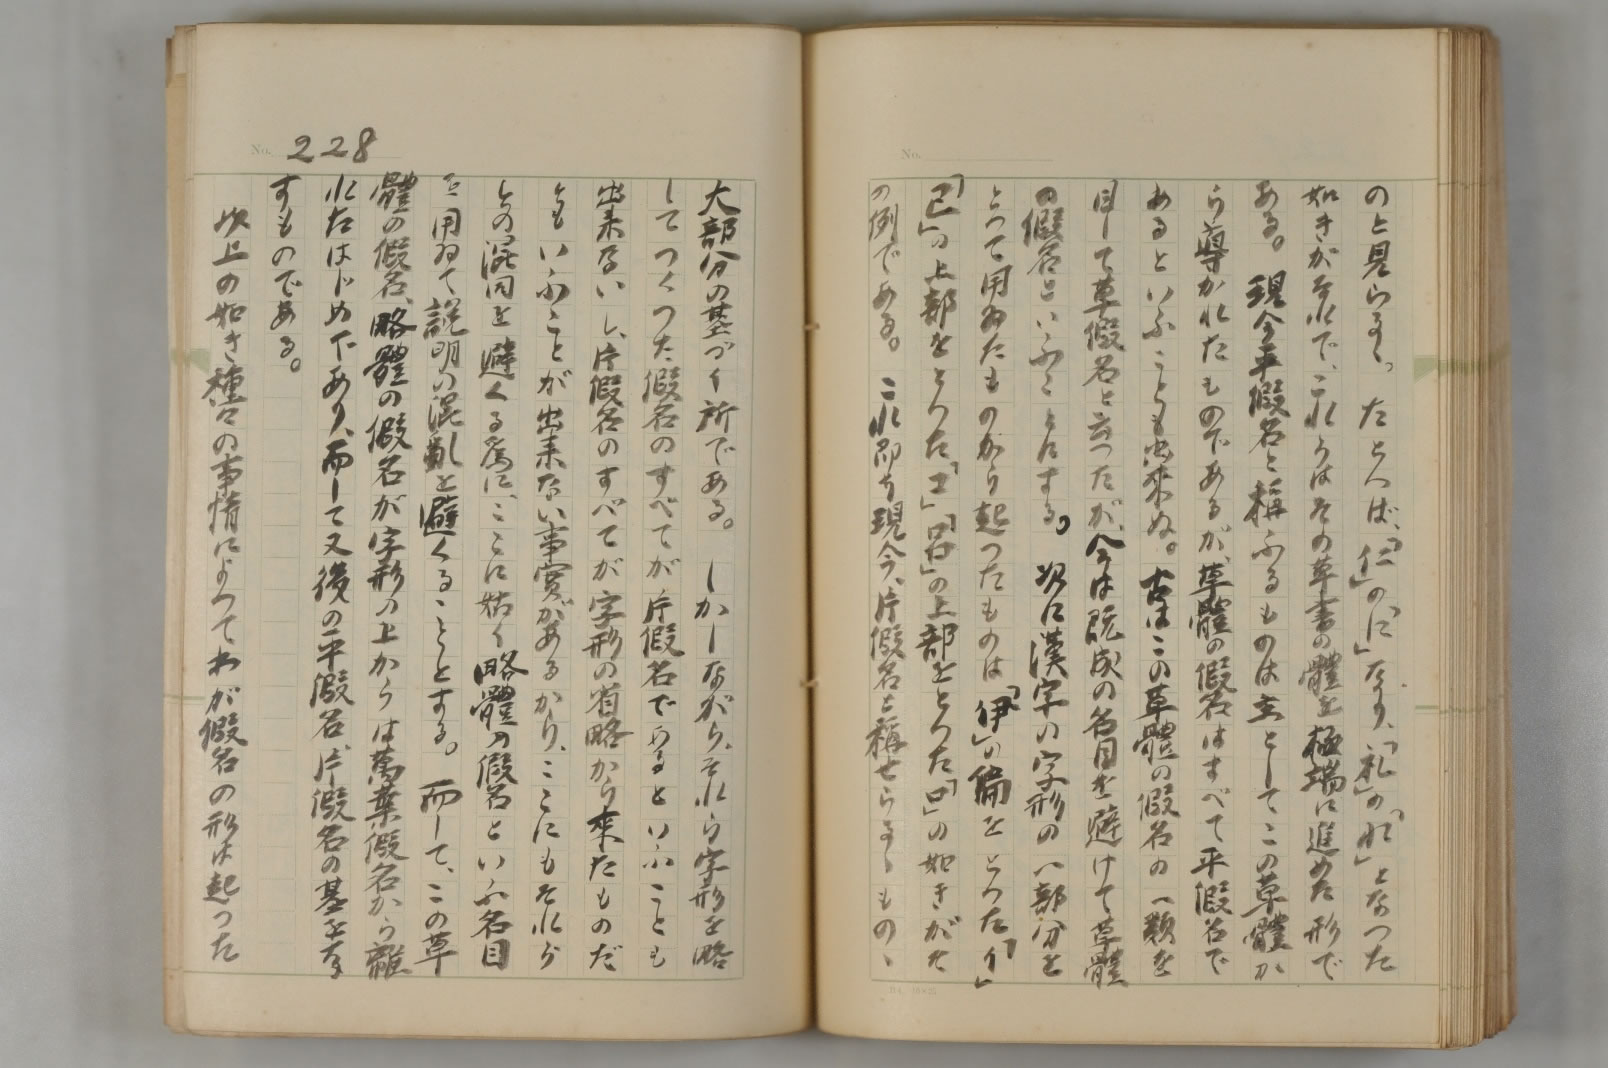 のと見らるゝ。たとへば、「仁」の「に」なり、「礼」の「れ」となつた
如きがそれで、これらはその草書の體を極端に進めた形で
ある。現今平假名と稱ふるものは主としてこの草體か
ら導かれたものであるが、草體の假名はすべて平假名で
あるといふことも出來ぬ。古はこの草體の假名の一類を
目して草假名と云つたが、今は既成の名目を避けて草體
の假名といふことにする。次に漢字の字形の一部分を
とつて用ゐたものから起つたものは「伊」の偏をとつた「イ」
「己」の上部をとつた「コ」「呂」の上部をとつた「ロ」の如きがた
の例である。これ即ち現今、片假名と稱せらるゝものゝ
No. 228
大部分の基づく所である。しかしながら、それら字形を略
してつくつた假名のすべてが片假名であるといふことも
出來ないし、片假名のすべてが字形の省略から來たものだ
ともいふことが出來ない事實があるから、ここにもそれら
との混同を避くる爲に、ここに姑く略體の假名といふ名目
を用ゐて説明の混亂を避くることとする。而して、この草
體の假名、略體の假名が字形の上からは萬葉假名から離
れたはじめであり、而して又後の平假名、片假名の基をな
すものである。
以上の如き種々の事情によつてわが假名の形は起つた
No.